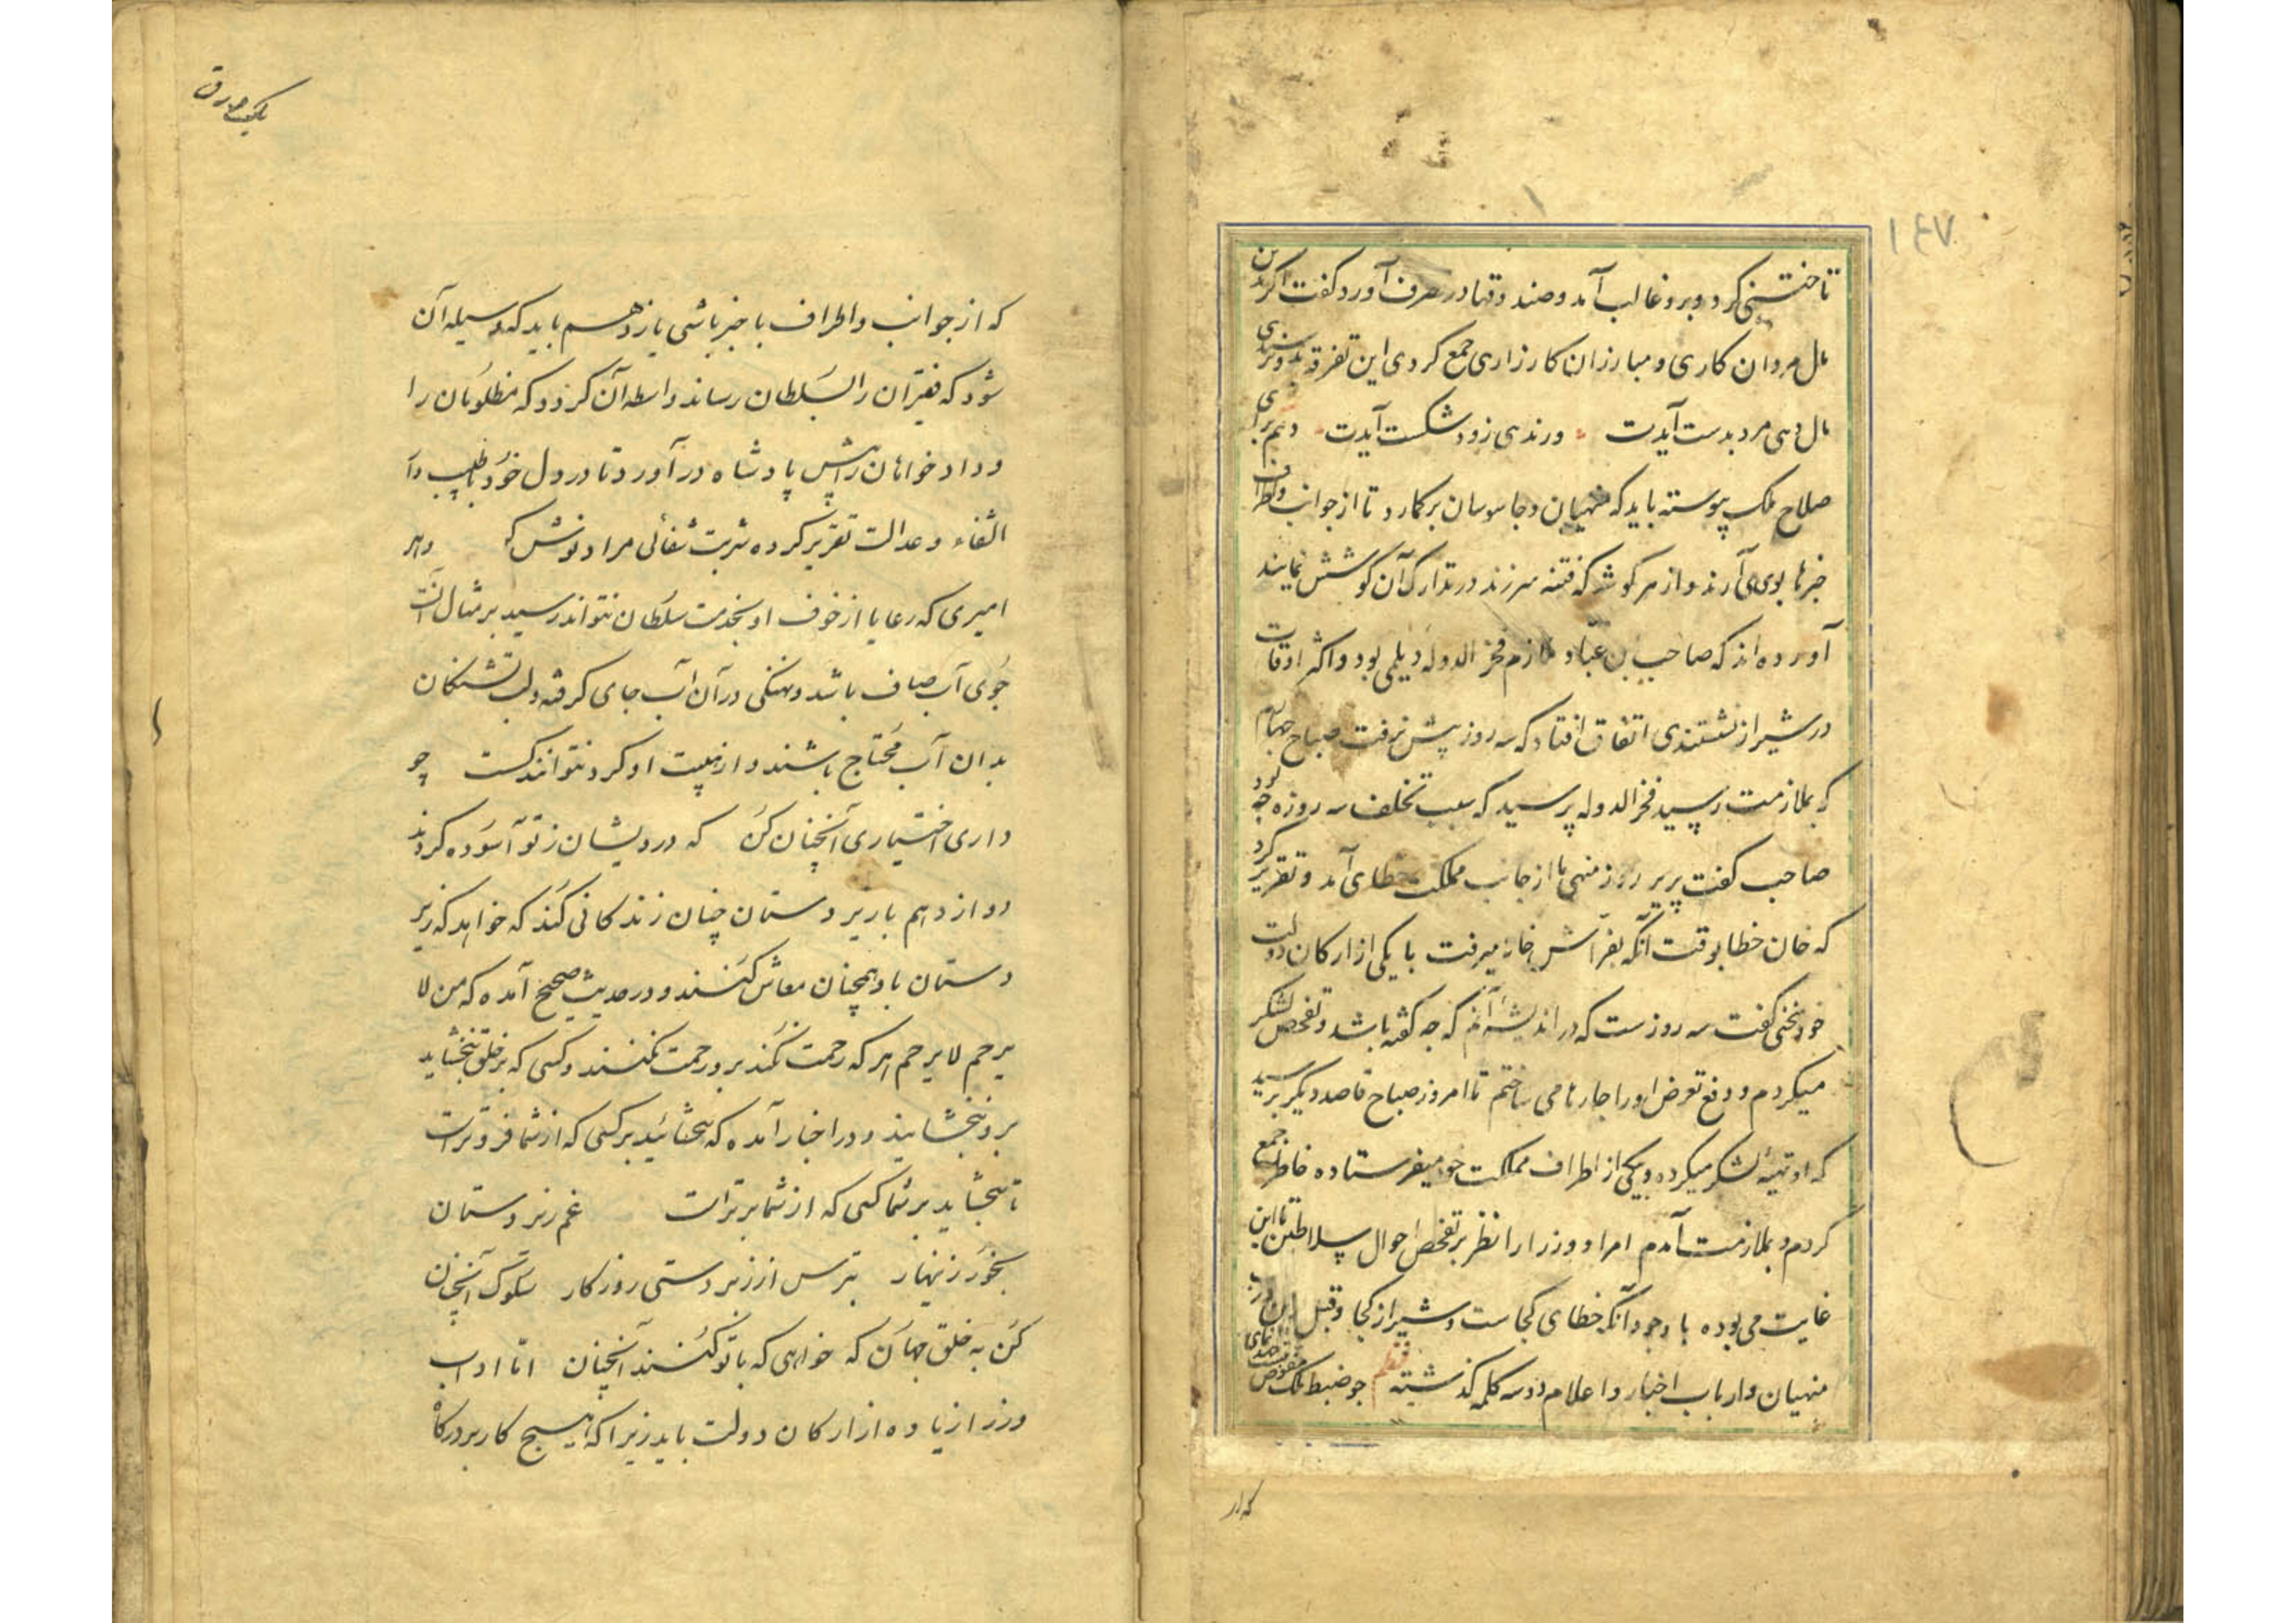 ۱۴۷
تاختنی کرد و برو غالب آمد و صندوقها در تصرف آورد گفت اگر بدین
مال مردان کاری و مبارزان کارزاری جمع کردی این تفرقه بتو نرسیدی
مال دهی مرد بدست آیدت ورندهی زود شکست آیدت دهم برای
صلاح ملک پیوسته باید که منهیان و جاسوسان برکمارد تا از جوانب و اطراف
خبرها بوی می آرند و از هر کوشه که فتنه سر زند در تدارک آن کوشش نمایند
آورده اند که صاحب بن عباد ملازم فخر الدوله دیلمی بود و اکثر اوقات
در شیراز نشستندی اتفاق افتاد که سه روز پیش نرفت صباح چهارم
که بملازمت رسید فخر الدوله پرسید که سبب تخلف سه روزه چه بود
صاحب گفت پریر روز منهی ما از جانب مملکت خطای آمد و تقریر کرد
که خان خطا بوقت آنکه بفراش خانه میرفت با یکی از ارکان دولت
خود سخنی گفت سه روزست که در اندیشه آنم که چه گفته باشد و تفحص لشکر
میکردم و دفع تعرض او را چارها می ساختم تا امروز صباح قاصد دیگر برسید
که او تهیه لشکر میکرده و بیکی از اطراف مملکت خود میفرستاده خاطر جمع
کردم و بملازمت آمدم امرا و وزرا را نظر بر تفحص احوال سلاطین تا این
غایت می بوده با وجود آنکه خطای کجاست و شیراز کجا و قبل ازین در باب
منهیان و ارباب اخبار و اعلام دو سه کلمه گذشته نظم چو ضبط ملک
که از
یک ورق
که از جوانب و اطراف با خبر باشی یازدهم باید که وسیله آن
شود که فقیران را بسلطان رساند و واسطه آن کردد که مظلومان را
و داد خواهان را پیش پادشاه در آورد تا درد دل خود بطبیب دار
الشفاء عدالت تقریر کرده شربت شفائی مراد نوش کند و هر
امیری که رعایا از خوف او بخدمت سلطان نتواند رسید بر مثال آنست
جوی آب صاف باشد و نهنگی در آن آب جای گرفته و لب تشنگان
بدان آب محتاج باشند و از هیبت او کرد نتوانند کشت چو
داری اختیاری آنچنان کن که درویشان ز تو آسوده کردند
دوازدهم با زیر دستان چنان زندکانی کند که خواهد که زبر
دستان با او همچنان معاش کنند و در حدیث صحیح آمده که من لا
یرحم لا یرحم هر که رحمت نکند برو رحمت نکنند و کسی که بر خلق نبخشاید
برو نبخشایند و در اخبار آمده که ببخشائید بر کسی که از شما فروتر است
تا ببخشاید بر شما کسی که از شما برتر است غم زیر دستان
بخور زینهار بترس از زبر دستی روزکار سلوک آنچنان
کن به خلق جهان که خواهی که با تو کنند آنچنان اما اداب
وزرا زیاده از ارکان دولت باید زیرا که هیچ کار بر درکاه